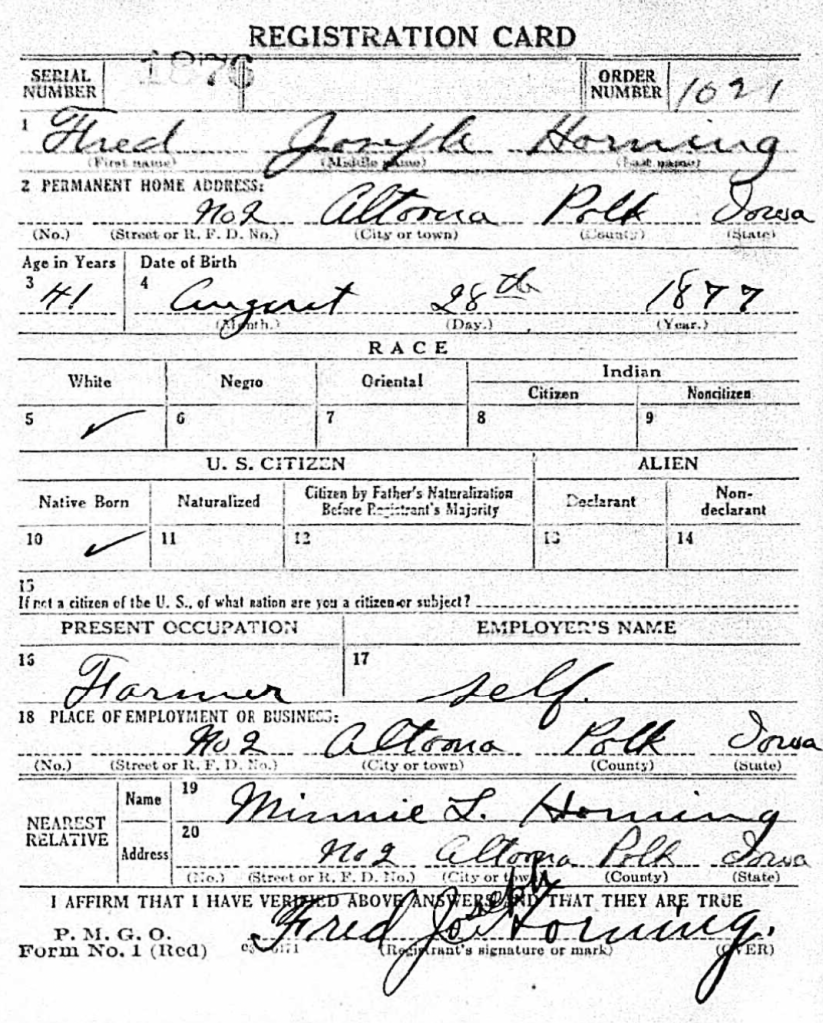 REGISTRATION CARD
SERIAL NUMBER 1876 ORDER NUMBER 1021
1 Fred Joseph Horning
(First name) (Middle name) (Last name)
2 PERMANENT HOME ADDRESS:
No 2 Altoona Polk Iowa
(No.) (Street or R. F. D. No.) (City or town) (County) (State)
Age in Years Date of Birth
3 41 4 August 28th 1877
(Month.) (Day.) (Year.)
RACE
White Negro Oriental Indian
Citizen Noncitizen
5 ✓ 6 7 8 9
U. S. CITIZEN ALIEN
Native Born Naturalized Citizen by Father's Naturalization Before Registrant's Majority Declarant Non-declarant
10 ✓ 11 12 13 14
15
If not a citizen of the U. S., of what nation are you a citizen or subject?
PRESENT OCCUPATION EMPLOYER'S NAME
16 Farmer 17 self.
18 PLACE OF EMPLOYMENT OR BUSINESS:
No 2 Altoona Polk Iowa
(No.) (Street or R. F. D. No.) (City or town) (County) (State)
NEAREST RELATIVE Name 19 Minnie L. Horning
Address 20 No 2 Altoona Polk Iowa
(No.) (Street or R. F. D. No.) (City or town) (County) (State)
I AFFIRM THAT I HAVE VERIFIED ABOVE ANSWERS AND THAT THEY ARE TRUE
P. M. G. O.
Form No. 1 (Red) Fred Joseph Horning.
(Registrant's signature or mark) (OVER)